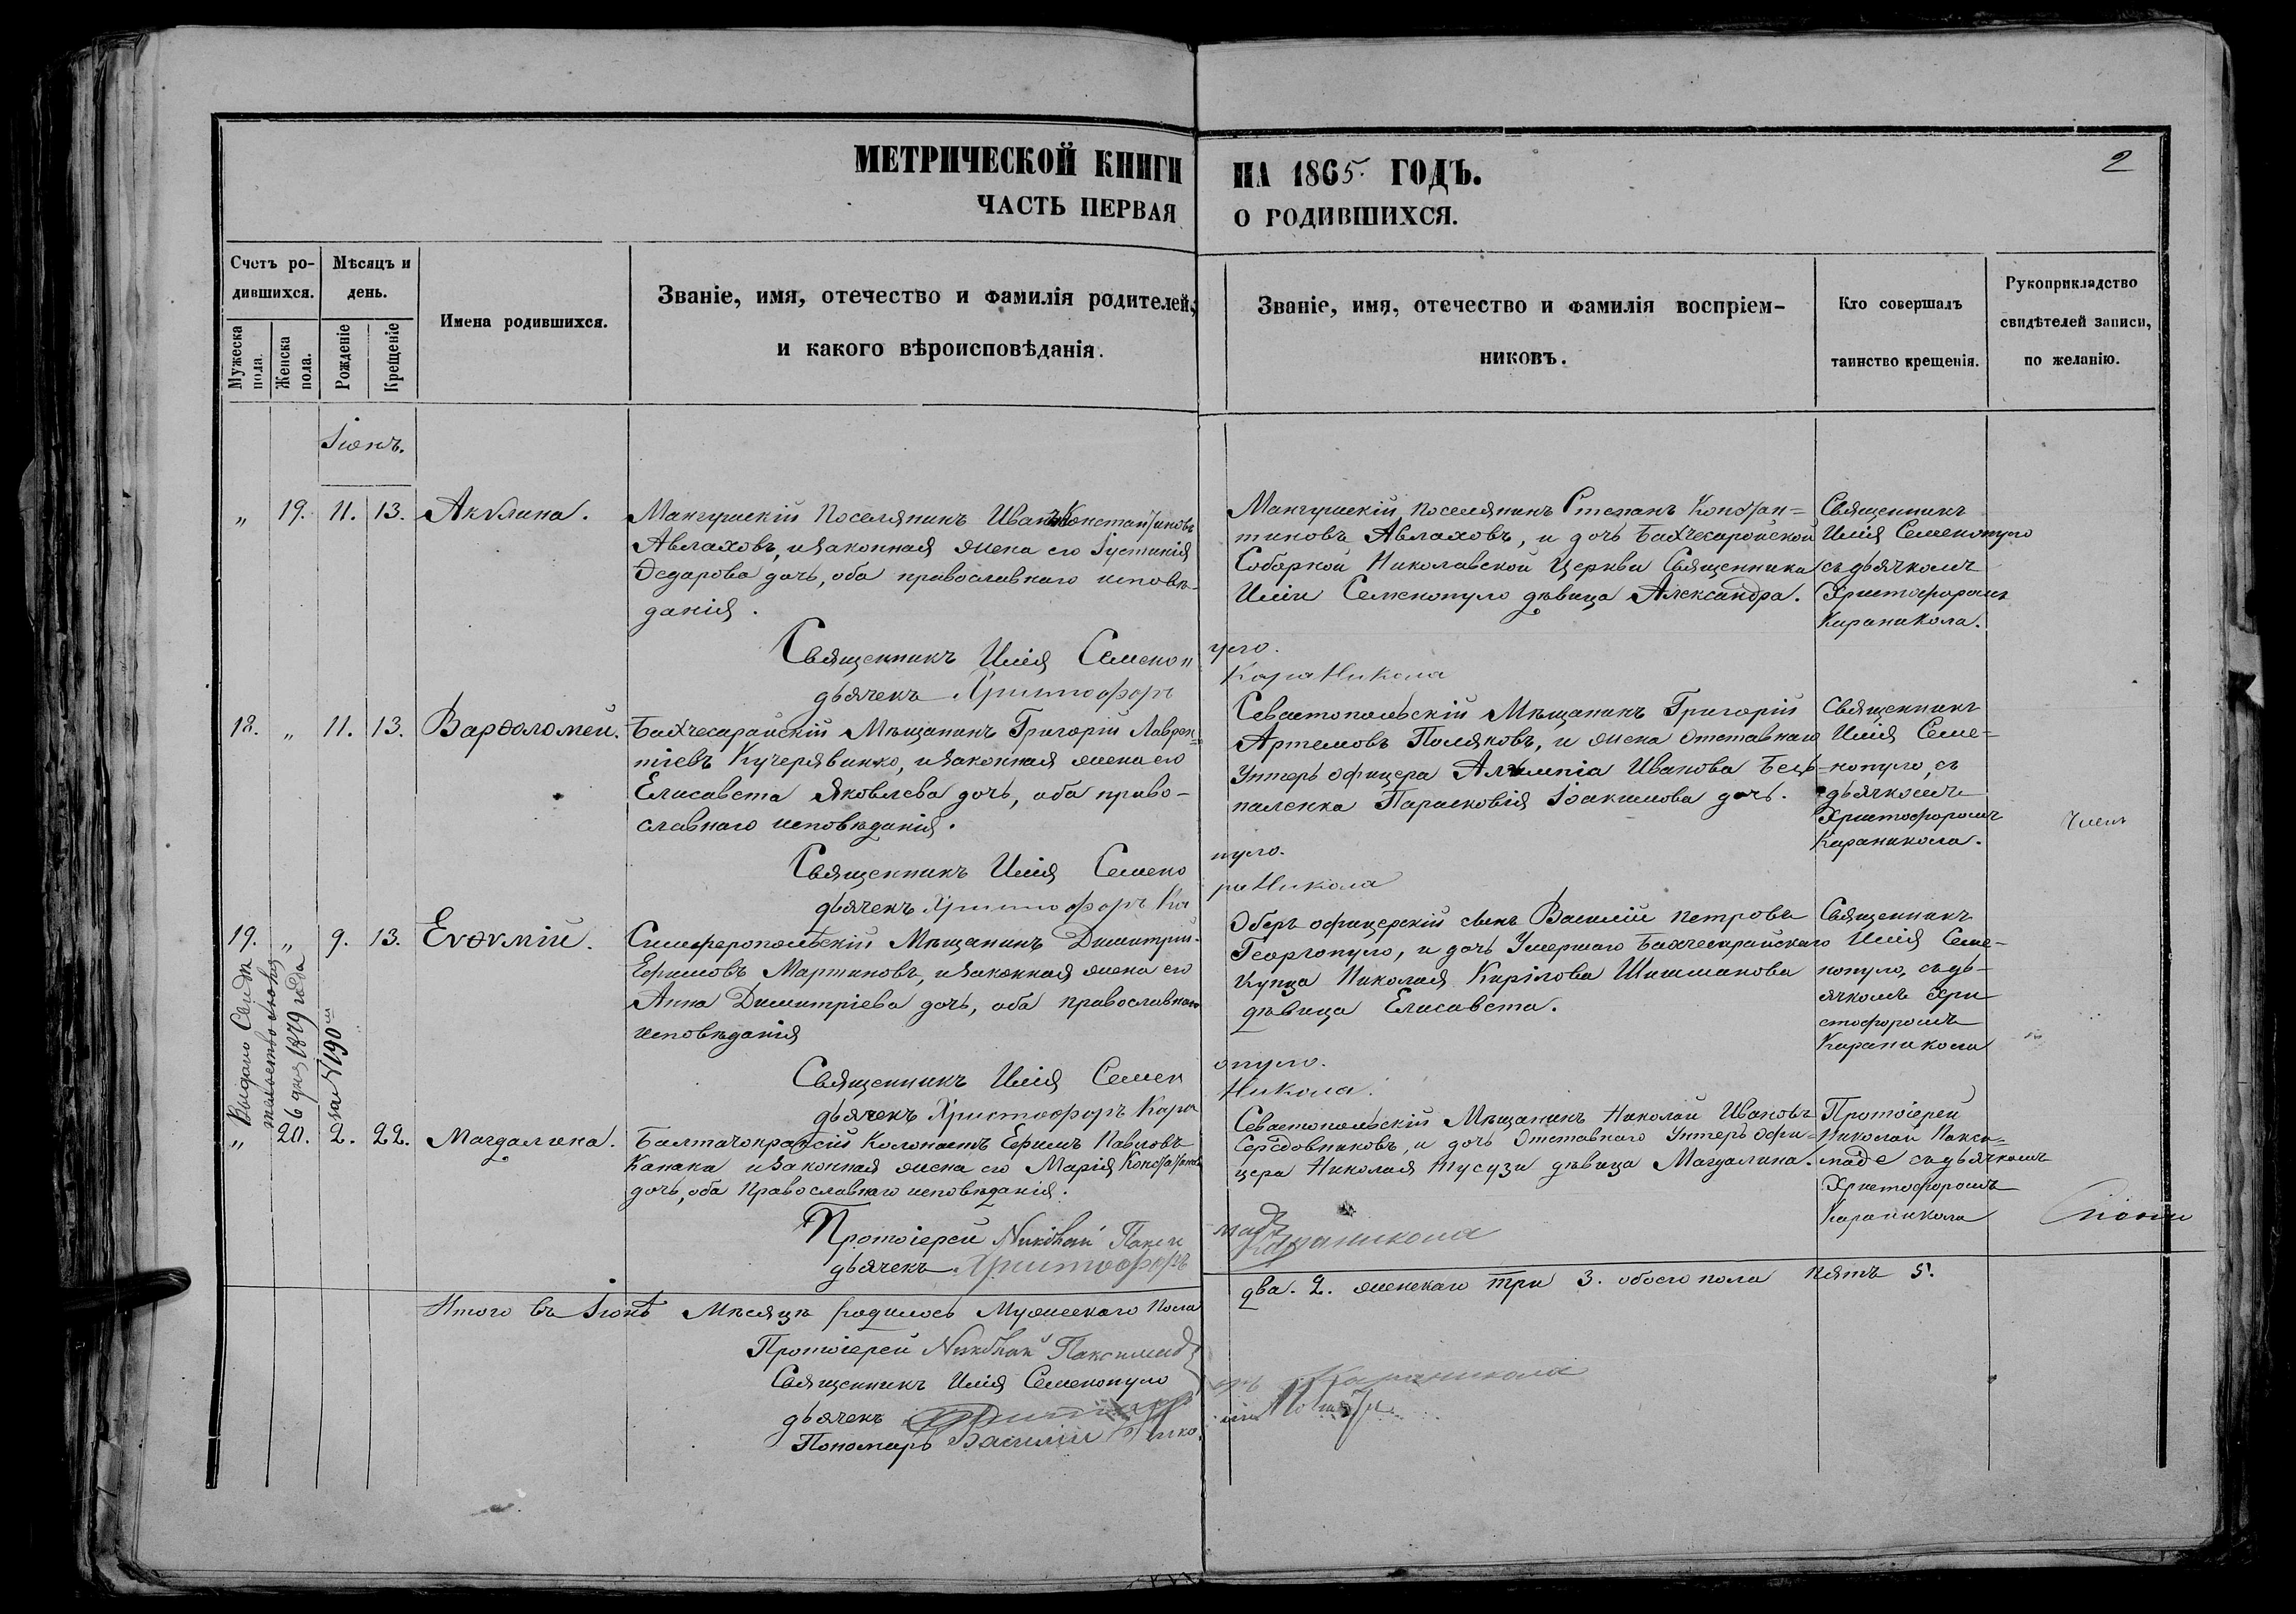 МЕТРИЧЕСКОЙ КНИГИ НА 1865 ГОДЪ.
2
ЧАСТЬ ПЕРВАЯ О РОДИВШИХСЯ.
Счетъ ро-
дившихся.
Мужеска пола.
Женска пола.
Мѣсяцъ и
день.
Рожденіе
Крещеніе
Имена родившихся.
Званіе, имя, отечество и фамилія родителей,
и какого вѣроисповѣданія.
Званіе, имя, отечество и фамилія воспріем-
никовъ.
Кто совершалъ
таинство крещенія.
Рукоприкладство
свидѣтелей записи,
по желанію.
Іюнь.
„ 19. 11. 13. Акѵлина.
Мангушскій Поселянинъ Иванъ Константиновъ
Авлаховъ, и законная жена его Іустинія
Ѳедорова дочь, оба православнаго исповѣ-
данія.
Мангушскій поселянинъ Степанъ Констан=
тиновъ Авлаховъ, и дочь Бахчесарайской
Соборной Николаевской Церкви Священника
Иліи Семенопуло дѣвица Александра.
Священникъ
Илія Семенопуло
съ дьячкомъ
Христофоромъ
Караникола.
Священникъ Илія Семенопуло.
дьячекъ Христофоръ Караникола
18. „ 11. 13. Варѳоломей.
Бахчесарайскій Мѣщанинъ Григорій Лаврен=
тіевъ Кучерявинко, и законная жена его
Елисавета Яковлева дочь, оба право-
славнаго исповѣданія.
Севастопольскій Мѣщанинъ Григорій
Артемовъ Поляковъ, и жена Отставнаго
Унтеръ офицера Ивакова
Парасковія Іоакимова дочь.
Священникъ
Илія Семе=
нопуло, съ
дьячкомъ
Христофоромъ
Караникола.
Священникъ Илія Семенопуло.
дьячекъ Христофоръ Караникола
19. „ 9. 13. Еѵѳѵмій.
Симферопольскій Мѣщанинъ Димитрій
Ефимовъ Мартиновъ, и законная жена его
Анна Димитріева дочь, оба православнаго
исповѣданія
Оберъ офицерскій сынъ Василій Петровъ
Георгопуло, и дочь Умершаго Бахчесарайскаго
Купца Николая Кирілова Шишманова
дѣвица Елисавета.
Священникъ
Илія Семе-
нопуло, съ дь-
ячкомъ Хри
стофоромъ
Караникола
Священникъ Илія Семенопуло.
дьячекъ Христофоръ Караникола.
Выдано Свидѣ
тельство Іюня
26 дня 1879 года
за № 190
„ 20. 2. 22. Магдалина.
Балтачокракскій Колонистъ Ефимъ Павловъ
Канака и законная жена его Марія Константинова
дочь, оба Православнаго исповѣданія.
Севастопольскій Мѣщанинъ Николай Ивановъ
Сердовниковъ, и дочь Отставнаго Унтеръ Офи=
цера Николая Тусузи дѣвица Магдалина.
Протоіерей
Николай Пакси=
маде съ дьячкомъ
Христофоромъ
Караникола
Протоіерей Николай Паксимадъ
дьячекъ Христофоръ Караникола
Итого въ Іюнѣ Мѣсяцѣ родилось Мужескаго Пола два. 2. женскаго три 3. обоего пола пять 5.
Протоіерей Николай Паксимадъ
Священникъ Илія Семенопуло
дьячекъ Христофоръ Караникола
Пономарь Василій